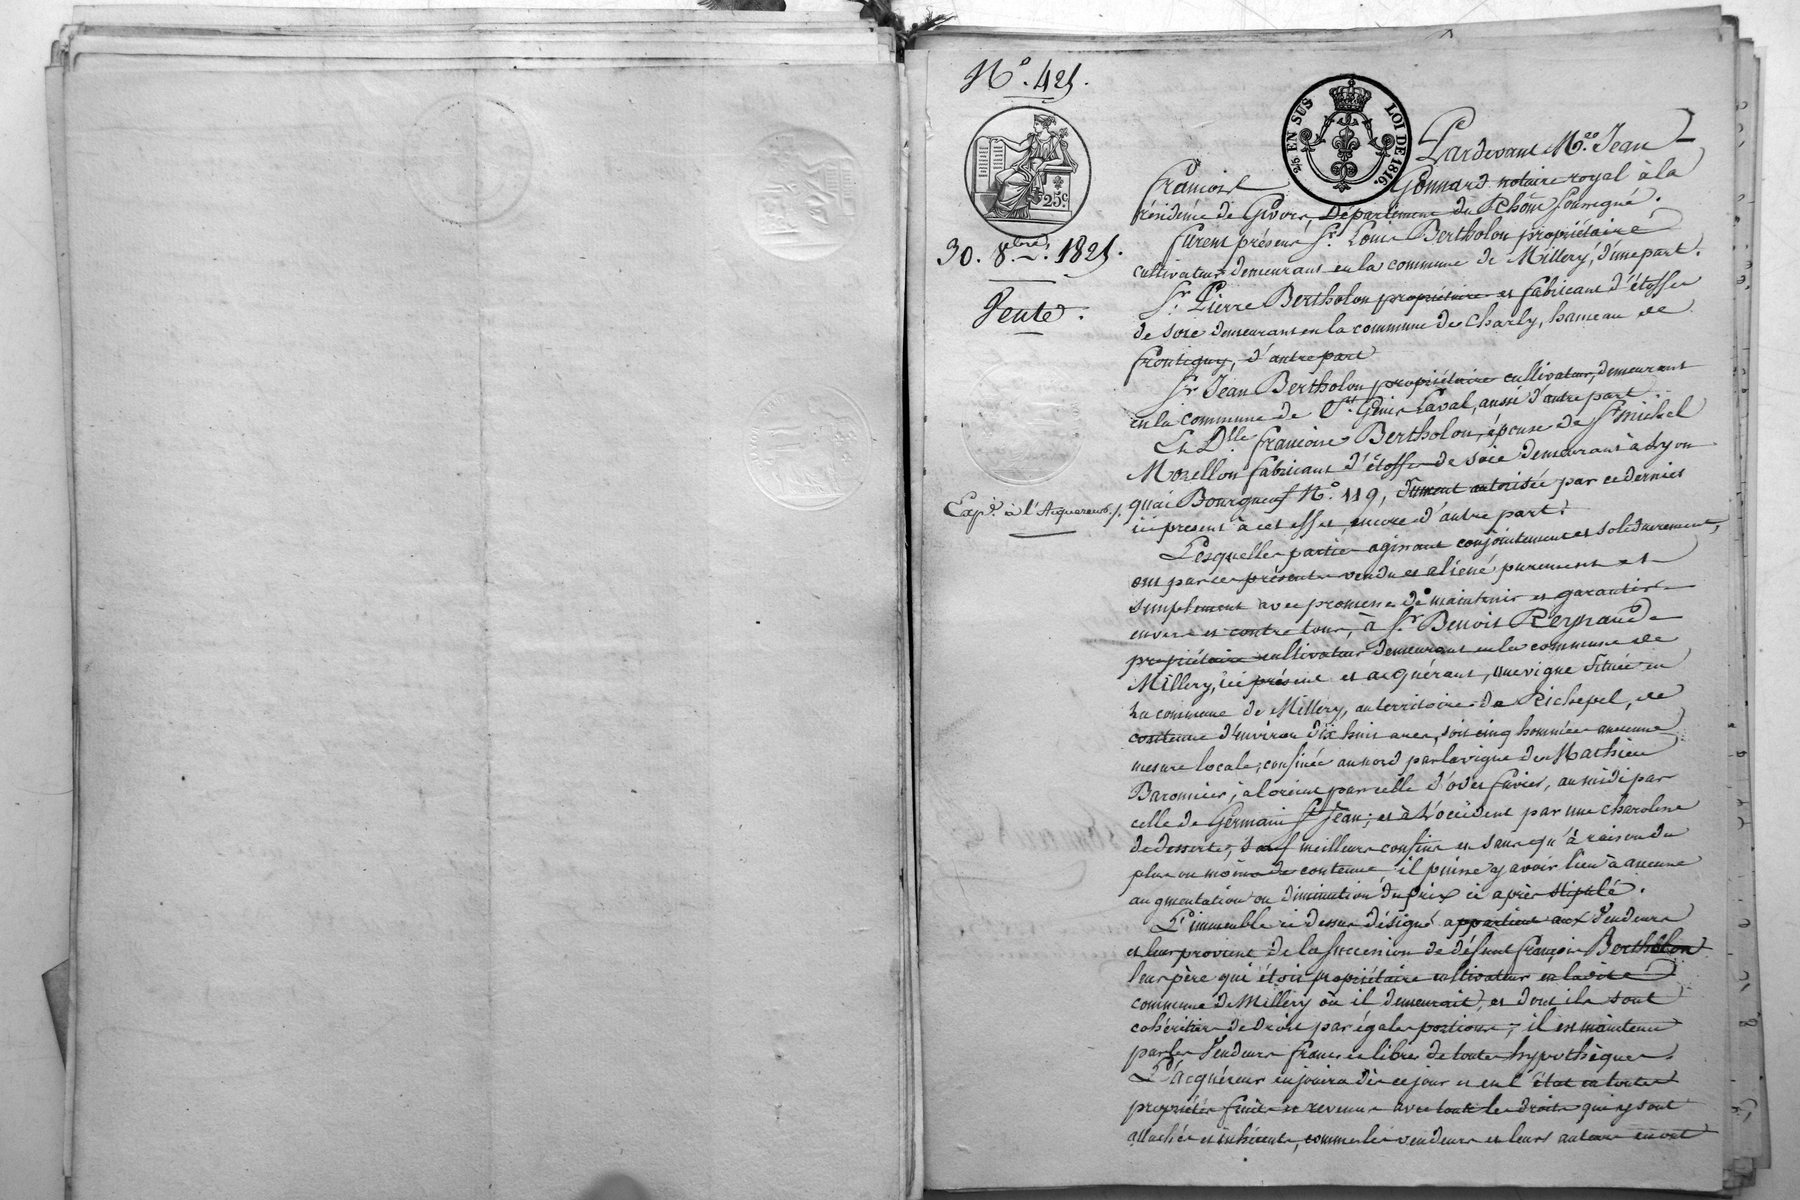 N.º 425.
25.c
2/10 EN SUS LOI DE 1816.
30. 8.bre 1825.
Vente.
Expé. à l'Acquéreur /.
Pardevant M.e Jean
François Gonnard notaire royal à la
résidence de Givors, Département du Rhône soussigné.
furent présens Sr. Louis Bertholon propriétaire
cultivateur demeurant en la commune de Millery, d'une part.
Sr. Pierre Bertholon propriétaire et fabricant d'étoffes
de soie demeurant en la commune de Charly, hameau de
frontigny, d'autre part
Sr Jean Bertholon propriétaire cultivateur, demeurant
en la commune de St. Genis Laval, aussi d'autre part
Et D.lle françoise Bertholon, épouse de Sr michel
Morellon fabricant d'étoffes de soie demeurant à Lyon
quai Bourgneuf N.º 119, dument autorisée par ce dernier
ici présent à cet effet, encore d'autre part.
Lesquelles parties agissant conjointement et solidairement,
ont par ces présentes vendu et aliéné purement et
simplement avec promesse de maintenir et garantir
envers et contre tous, à Sr. Benoit Reynaud
propriétaire cultivateur demeurant en la commune de
Millery, ici présent et acquérant, une vigne située en
la commune de Millery, au territoire de Richepel, de
contenue d'environ dix huit ares, soit cinq hommées ancienne
mesure locale; confinée au nord par la vigne de Mathieu
Baronnier; à l'orient par celle d'odet favier, au midi par
celle de Germain St Jean; et à l'occident par une charoline
de desserte, sauf meilleurs confins et sans qu'à raison du
plus ou moins de contenue il puisse y avoir lieu à aucune
augmentation ou diminution du prix ci après stipulé.
L'immeuble ci dessus désigné appartient aux Vendeurs
et leur provient de la succession de défunt françois Bertholon
leur père qui étoit propriétaire cultivateur en la dite
commune de Millery où il demeuroit, et dont ils sont
cohéritiers de droit par égales portions; il est maintenu
par les Vendeurs franc et libre de toutes hypothèques.
L'acquéreur en jouira dès ce jour et en l'état en toutes
propriétés fruits et revenus avec tous les droits qui y sont
attachés et inhérents, comme les vendeurs et leurs auteurs en ont